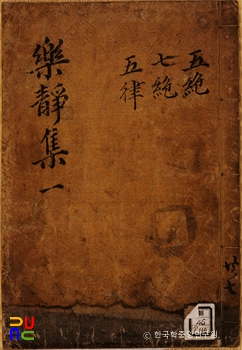 樂靜集 一
五絶
七絶
五律
共七
© 한국학중앙연구원